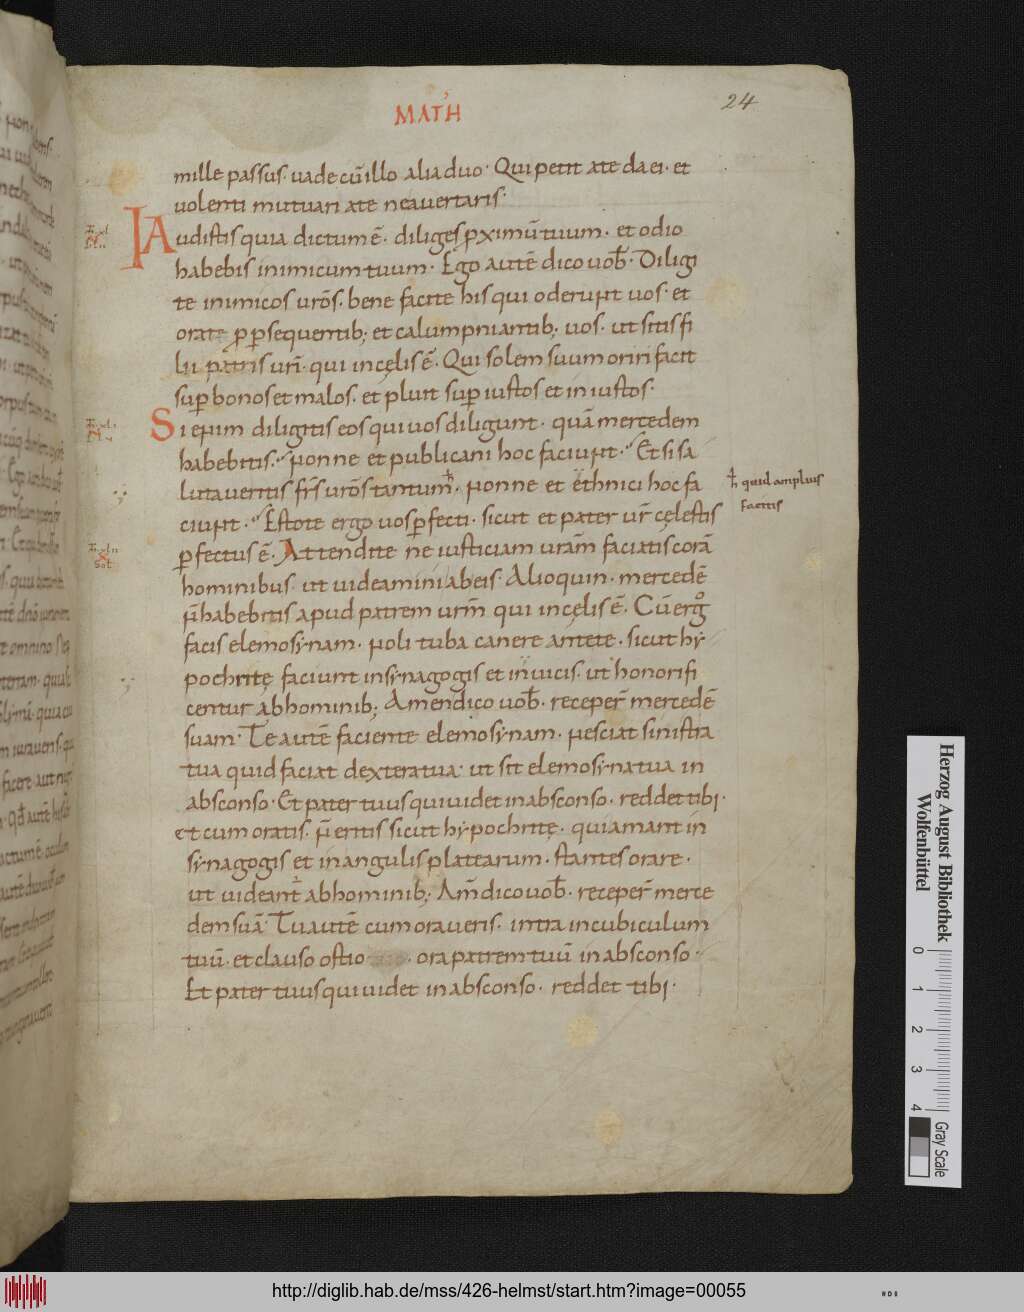 MATH
24
mille passus · uade cū illo alia duo · Qui petit a te da ei · et
uolenti mutuari a te ne auertaris ·
Audistis quia dictum ē · diliges pximū tuum · et odio
habebis inimicum tuum · Ego autē dico uob · Diligi
te inimicos urōs · bene facite his qui oderunt uos · et
orate p psequentib; et calumpniantib; uos · ut sitis fi
lii patris urī · qui in cęlis ē · Qui solem suum oriri facit
sup bonos et malos · et pluit sup iustos et iniustos ·
Si enim diligitis eos qui uos diligunt · quā mercedem
habebitis · nonne et publicani hoc faciunt · Et si sa
lutaueritis frs urōs tantum · nonne et ethnici hoc fa
quid amplius
facitis
ciunt · Estote ergo uos pfecti · sicut et pater ur cęlestis
pfectus ē · Attendite ne iusticiam uram faciatis corā
hominibus · ut uideamini ab eis · Alioquin · mercedē
n habebitis apud patrem urm qui in cęlis ē · Cū ergo
facis elemosynam · noli tuba canere ante te · sicut hy
pochritę faciunt in synagogis et in uicis · ut honorifi
centur ab hominib; Amen dico uob · receper mercedē
suam · Te autē faciente elemosynam · nesciat sinistra
tua quid faciat dextera tua · ut sit elemosyna tua in
absconso · Et pater tuus qui uidet in absconso · reddet tibi ·
et cum oratis · n eritis sicut hypochritę · qui amant in
synagogis et in angulis platearum · stantes orare ·
ut uideant ab hominib; Am dico uob · receper merce
dem suā · Tu autē cum oraueris · intra in cubiculum
tuū · et clauso ostio · ora patrem tuū in absconso ·
Et pater tuus qui uidet in absconso · reddet tibi ·
Herzog August Bibliothek
Wolfenbüttel
0 1 2 3 4
Gray Scale
http://diglib.hab.de/mss/426-helmst/start.htm?image=00055